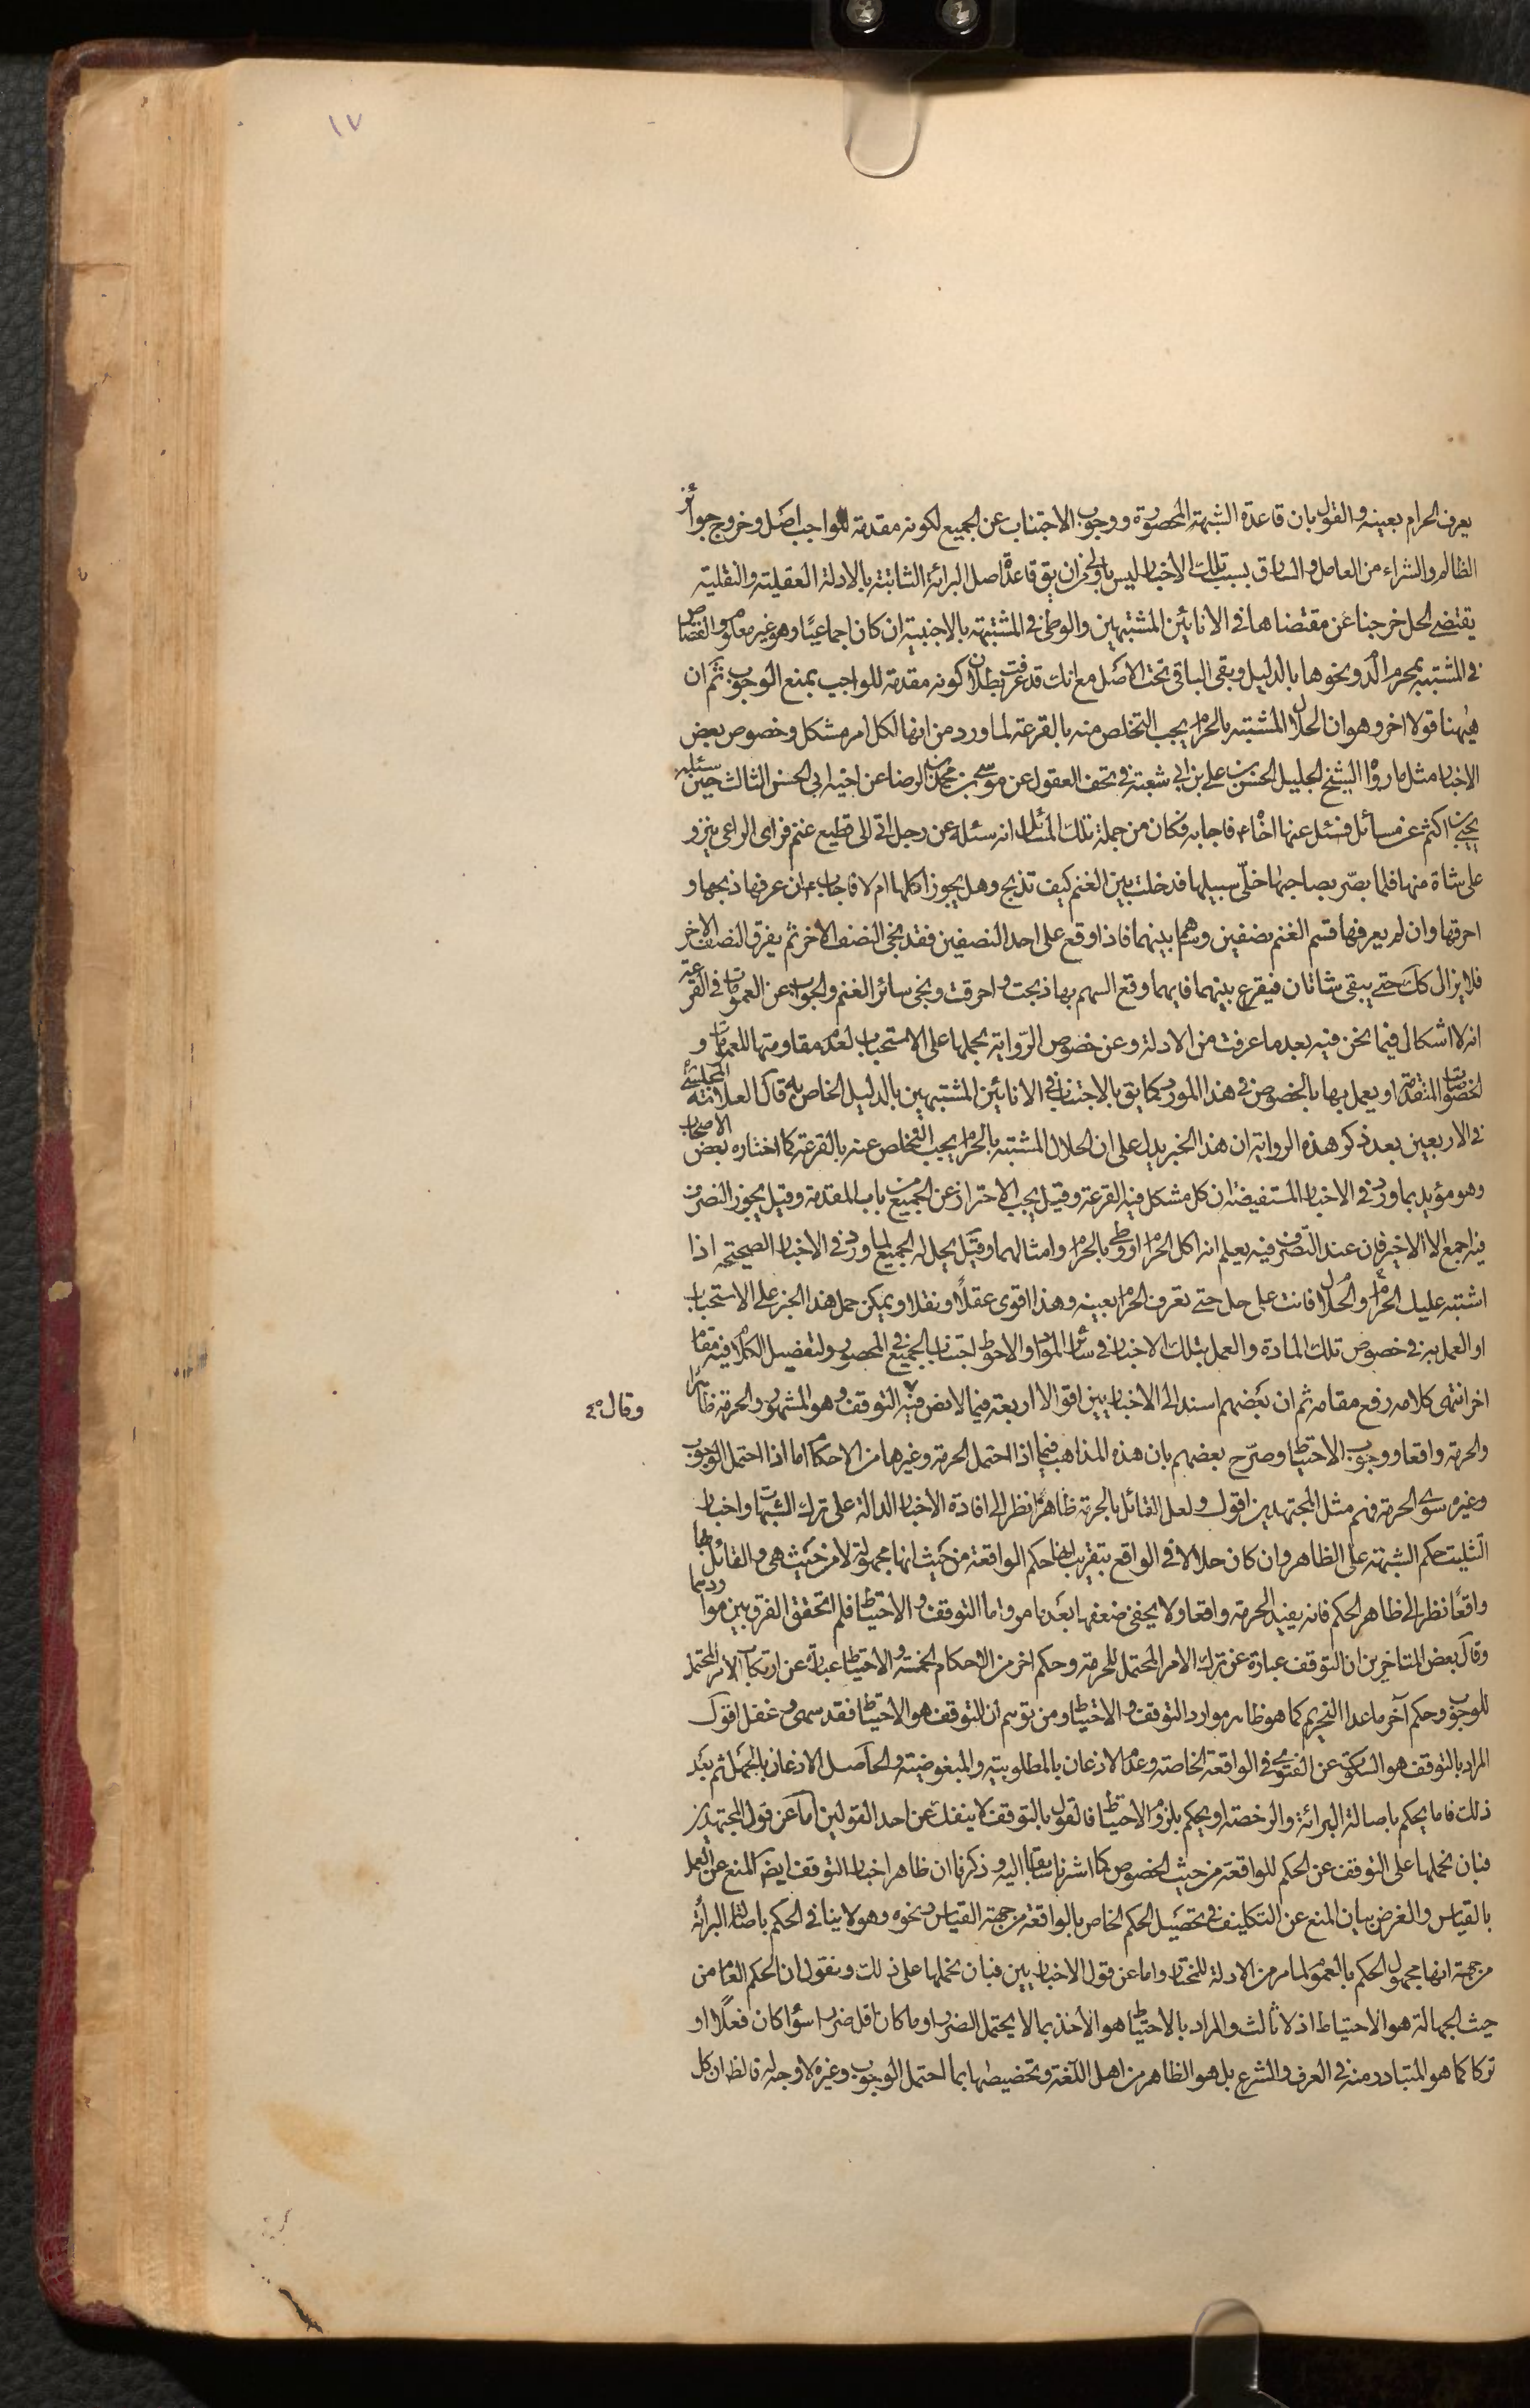 ١٧
يعرف الحرام بعينه والقول بان قاعدة الشبهة المحصورة ووجوب الاجتناب عن الجميع لكونه مقدمة للواجب اصل وخروج جوائز
الظالم والشراء من العامل والسارق بسبب تلك الاخبار ليس باولى من ان يق قاعدة اصل البرائة الثابتة بالادلة العقلية والنقلية
يقتضى الحل خرجنا عن مقتضاها فى الانائين المشتبهين والوطى فى المشتبهة بالاجنبية ان كان اجماعيا وهو غير معلوم والقصاص
فى المشتبه بمحرم الدم ونحوها بالدليل وبقى الباقى تحت الاصل مع انك قد عرفت بطلان كونه مقدمة للواجب بمنع الوجوب ثم ان
ههنا قولا اخر وهو ان الحلال المشتبه بالحرام يجب التخلص منه بالقرعة لما ورد من انها لكل امر مشكل وخصوص بعض
الاخبار مثل ما رواه الشيخ الجليل الحسن بن على بن ابى شعبة فى تحف العقول عن موسى بن محمد بن الرضا عن اخيه ابى الحسن الثالث حين سئله
يحيى بن اكثم عن مسائل فسئل عنها اخاه ع فاجابه فكان من جملة تلك المسائل انه سئله عن رجل اتى الى قطيع غنم فراى الراعى ينزو
على شاة منها فلما بصر بصاحبها خلّى سبيلها فدخلت بين الغنم كيف تذبح وهل يجوز اكلها ام لا فاجاب ع ان عرفها ذبحها و
احرقها وان لم يعرفها قسم الغنم نصفين وساهم بينهما فاذا وقع على احد النصفين فقد نجى النصف الاخر ثم يفرق النصف الاخر
فلا يزال كك حتى يبقى شاتان فيقرع بينهما فايهما وقع السهم بها ذبحت واحرقت ونجى سائر الغنم والجواب عن العمومات فى القرعة
انه لا اشكال فيما نحن فيه بعد ما عرفت من الادلة وعن خصوص الرواية بحملها على الاستحباب لعدم مقاومتها للعمومات و
الخصوصات المتقدمة او يعمل بها بالخصوص فى هذا المورد كما يق بالاجتناب فى الانائين المشتبهين بالدليل الخاص به قال العلامة المجلسى
فى الاربعين بعد ذكر هذه الرواية ان هذا الخبر يدل على ان الحلال المشتبه بالحرام يجب التخلص عنه بالقرعة كما اختاره بعض الاصحاب
وهو مؤيد بما ورد فى الاخبار المستفيضة ان كل مشكل فيه القرعة وقيل يجب الاحتراز عن الجميع من باب المقدمة وقيل يجوز التصرف
فيه اجمع الا الاخير فان عند التصرف فيه يعلم انه اكل الحرام او وطى بالحرام وامثالهما وقيل يحل له الجميع لما ورد فى الاخبار الصحيحة اذا
اشتبه عليك الحرام والحلال فانت على حل حتى تعرف الحرام بعينه وهذا اقوى عقلا ونقلا ويمكن حمل هذا الخبر على الاستحباب
او العمل به فى خصوص تلك المادة والعمل بتلك الاخبار فى سائر المواد والاحوط اجتناب الجميع فى المحصور ولتفصيل الكلام فيه مقام
اخر انتهى كلامه رفع مقامه ثم ان بعضهم اسند الى الاخباريين اقوالا اربعة فيما لا نص فيه التوقف وهو المشهور والحرمة ظاهرا
والحرمة واقعا ووجوب الاحتياط وصرّح بعضهم بان هذه المذاهب فيما اذا احتمل الحرمة وغيرها من الاحكام اما اذا احتمل الوجوب
وغيره سوى الحرمة فهم مثل المجتهدين اقول ولعل القائل بالحرمة ظاهرا نظر الى افادة الاخبار الدالة على ترك الشبهات واخبار
التثليث حكم الشبهة على الظاهر وان كان حلالا فى الواقع بتقريب انها حكم الواقعة من حيث انها مجهولة لا من حيث هى والقائل بها
واقعا نظر الى ظاهر الحكم فانه يفيد الحرمة واقعا ولا يخفى ضعفها بعد ما مر واما التوقف والاحتياط فلم اتحقق الفرق بين مواردهما
وقال بعض المتاخرين ان التوقف عبارة عن ترك الامر المحتمل للحرمة وحكم اخر من الاحكام الخمسة والاحتياط عبارة عن ارتكاب الامر المحتمل
للوجوب وحكم آخر ما عدا التحريم كما هو ظاهر موارد التوقف والاحتياط ومن توهم ان التوقف هو الاحتياط فقد سهى وغفل اقول
المراد بالتوقف هو السكوت عن الفتوى فى الواقعة الخاصة وعدم الاذعان بالمطلوبية والمبغوضية والحاصل الاذعان بالجهل ثم بعد
ذلك فاما يحكم باصالة البرائة والرخصة او يحكم بلزوم الاحتياط فالقول بالتوقف لا ينفك عن احد القولين اما عن قول المجتهدين
فبان نحملها على التوقف عن الحكم للواقعة من حيث الخصوص كما اشرنا سابقا اليه وذكرنا ان ظاهر اخبار التوقف ايضا المنع عن العمل
بالقياس والغرض بيان المنع عن التكليف فى تحصيل الحكم الخاص بالواقعة من جهة القياس ونحوه وهو لا ينافى الحكم باصالة البرائة
من جهة انها مجهول الحكم بالعموم لما مر من الادلة للمختار واما عن قول الاخباريين فبان نحملها على ذلك ونقول ان الحكم العام من
حيث الجهالة هو الاحتياط اذ لا ثالث والمراد بالاحتياط هو الاخذ بما لا يحتمل الضرر او ما كان اقل ضررا سواء كان فعلا او
تركا كما هو المتبادر منه فى العرف والشرع بل هو الظاهر من اهل اللغة وتخصيصها بما احتمل الوجوب وغيره لا وجه له فالظ ان كل
وقال